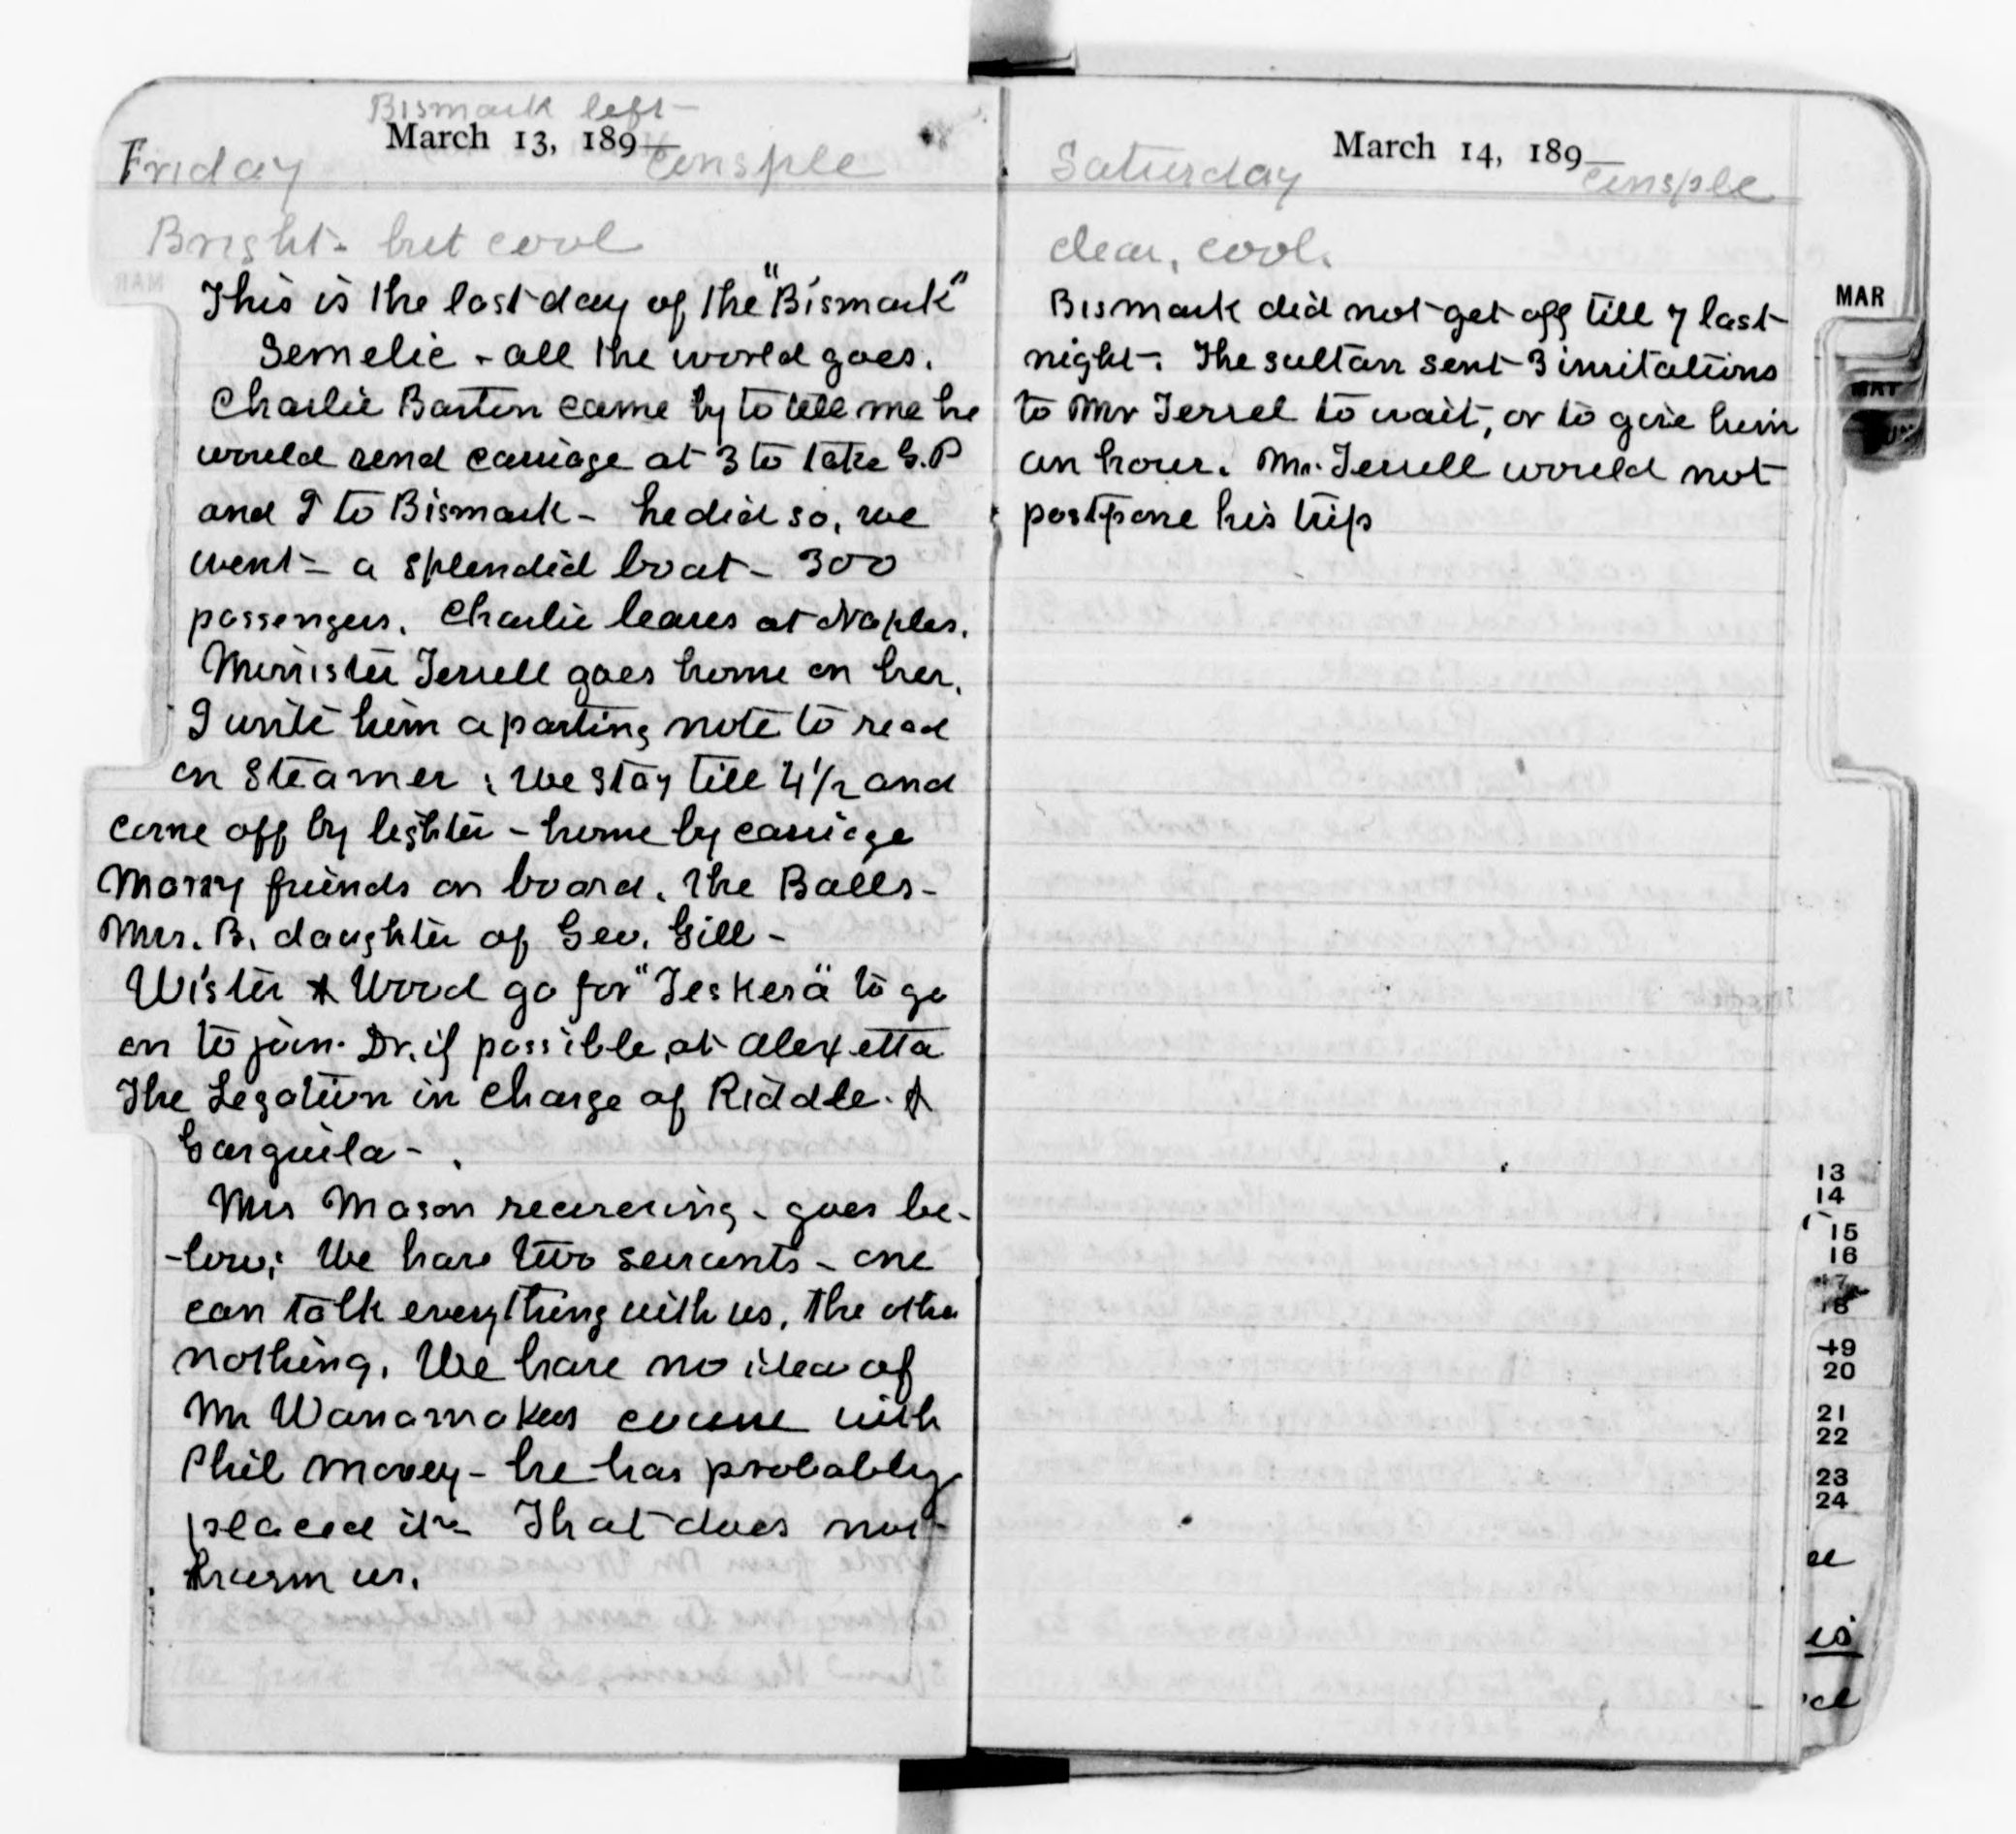 Bismark left
March 13, 189
Friday Consple
Bright - but cool
This is the last day of the "Bismark"
Semelic - all the world goes.
Charlie Barton came by to tell me he
would send carriage at 3 to take G.P
and I to Bismark - he did so, we
went - a splendid boat - 300
passengers. Charlie leaves at Naples.
Minister Terrell goes home on her.
I write him a parting note to read
on Steamer; We stay till 4 1/2 and
come off by lighter - home by carriage
Many friends on board. The Balls -
Mrs. B. daughter of Geo. Gill -
Wister & Wood go for "Teskera" to go
on to join Dr. if possible, at Alexetta
The Legation in charge of Riddle &
Garguila -
Mrs Mason recovering - goes be-
-low; We have two servants - one
can talk everything with us, the other
nothing. We have no idea of
Mr Wanamakers course with
Phil money - he has probably
placed it - That does not
harm us.
March 14, 189
Saturday Consple
clear, cool.
Bismark did not get off till 7 last
night. The sultan sent 3 invitations
to Mr Terrel to wait, or to give him
an hour. Mr. Terrell would not
postpone his trip
MAR
MAY
13
14
15
16
17
18
19
20
21
22
23
24